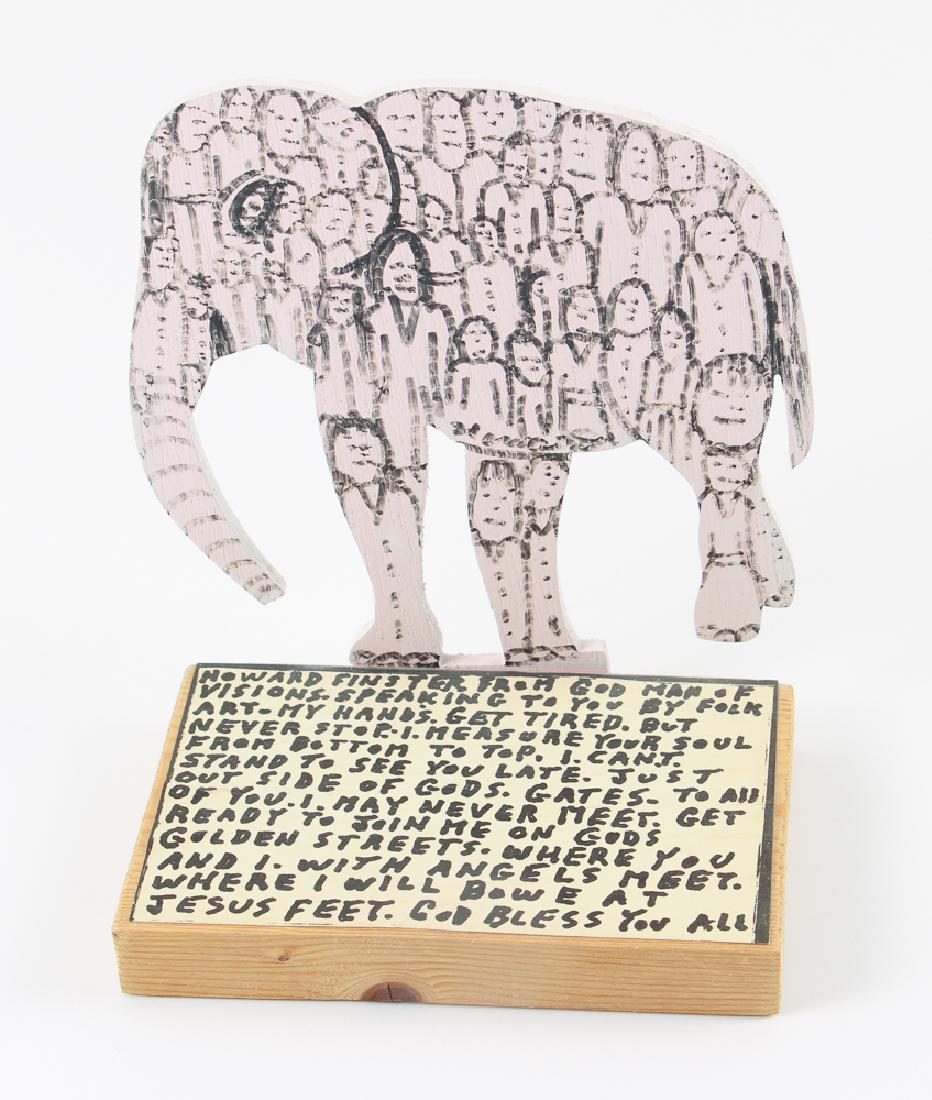 HOWARD FINSTER FROM GOD MAN OF
VISIONS. SPEAKING TO YOU BY FOLK
ART. MY HANDS. GET TIRED. BUT
NEVER STOP. I. MEASURE YOUR SOUL
FROM BOTTOM TO TOP. I. CANT.
STAND TO SEE YOU LATE. JUST
OUT SIDE OF GODS. GATES. TO All
OF YOU. I. MAY NEVER MEET. GET
READY TO JOIN ME ON GODS
GOLDEN STREETS. WHERE YOU
AND I. WITH ANGELS MEET.
WHERE I WILL BOWE AT
JESUS FEET. GOD BLESS YOU ALL